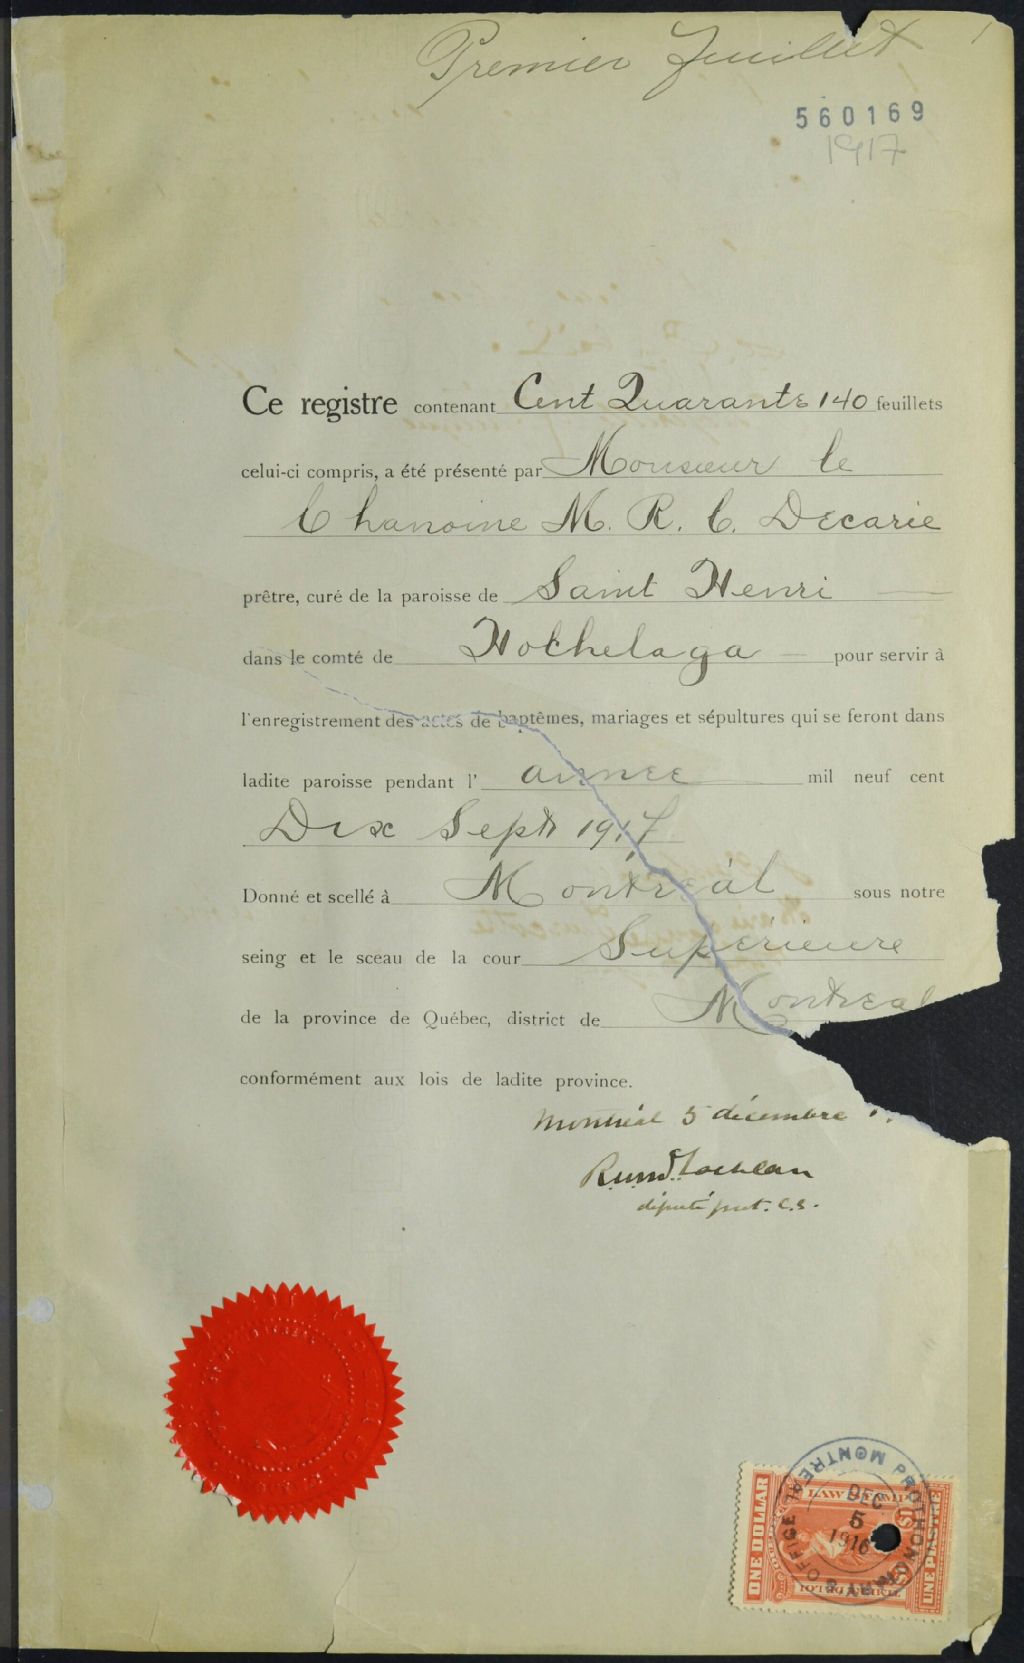 Premier feuillet
560169
1917
Ce registre contenant Cent Quarante 140 feuillets
celui-ci compris, a été présenté par Monsieur le
Chanoine M. R. C. Decarie
prêtre, curé de la paroisse de Saint Henri
dans le comté de Hochelaga pour servir à
l'enregistrement des actes de baptêmes, mariages et sépultures qui se feront dans
ladite paroisse pendant l' année mil neuf cent
Dix Sept 1917
Donné et scellé à Montréal sous notre
seing et le sceau de la cour Supérieure
de la province de Québec, district de Montreal
conformément aux lois de ladite province.
Montréal 5 décembre
député prot. C.S.
PROTHONOTARY'S OFFICE MONTREAL
DEC
5
1916
LAW STAMP
ONE DOLLAR
$1
UNE PIASTRE